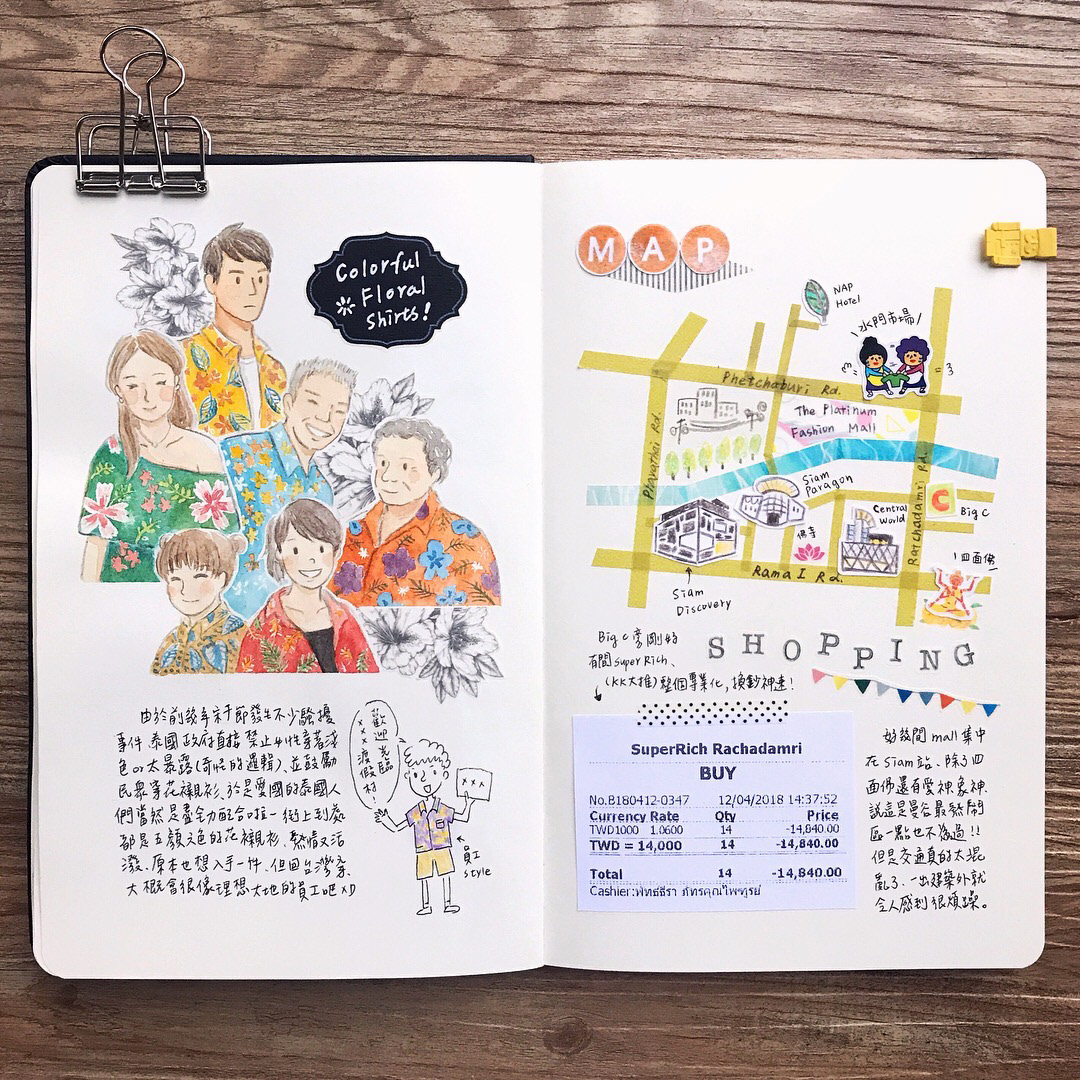 Colorful
Floral
Shirts!
由於前幾年宋干節發生不少騷擾
事件,泰國政府直接禁止女性穿著淺
色or太暴露(奇怪的邏輯),並鼓勵
民眾穿花襯衫,於是愛國的泰國人
們當然是盡全力配合啦~街上到處
都是五顏六色的花襯衫,熱情又活
潑,原本也想入手一件,但回台灣穿,
大概會很像理想大地的員工吧XD
歡迎光臨
xxx渡假村!
xxx
員工
style
MAP
NAP
Hotel
水門市場
Phetchaburi Rd.
The Platinum
Fashion Mall
Phayathai Rd.
Siam
Paragon
Ratchadamri Rd.
Central
World
C
Big C
佛寺
四面佛
Rama I Rd.
Siam
Discovery
Big C旁剛好
有間Super Rich、
(KK大推)整個專業化,換鈔神速!
SHOPPING
SuperRich Rachadamri
BUY
No.B180412-0347 12/04/2018 14:37:52
Currency Rate Qty Price
TWD1000 1.0600 14 -14,840.00
TWD = 14,000 14 -14,840.00
Total 14 -14,840.00
Cashier:พัทธ์ธีรา ภัทรคุณไพฑูรย์
好幾間mall集中
在Siam站,除了四
面佛還有愛神象神,
說這是曼谷最熱鬧
區一點也不為過!!
但是交通真的太混
亂了,一出建築外就
令人感到很煩躁。